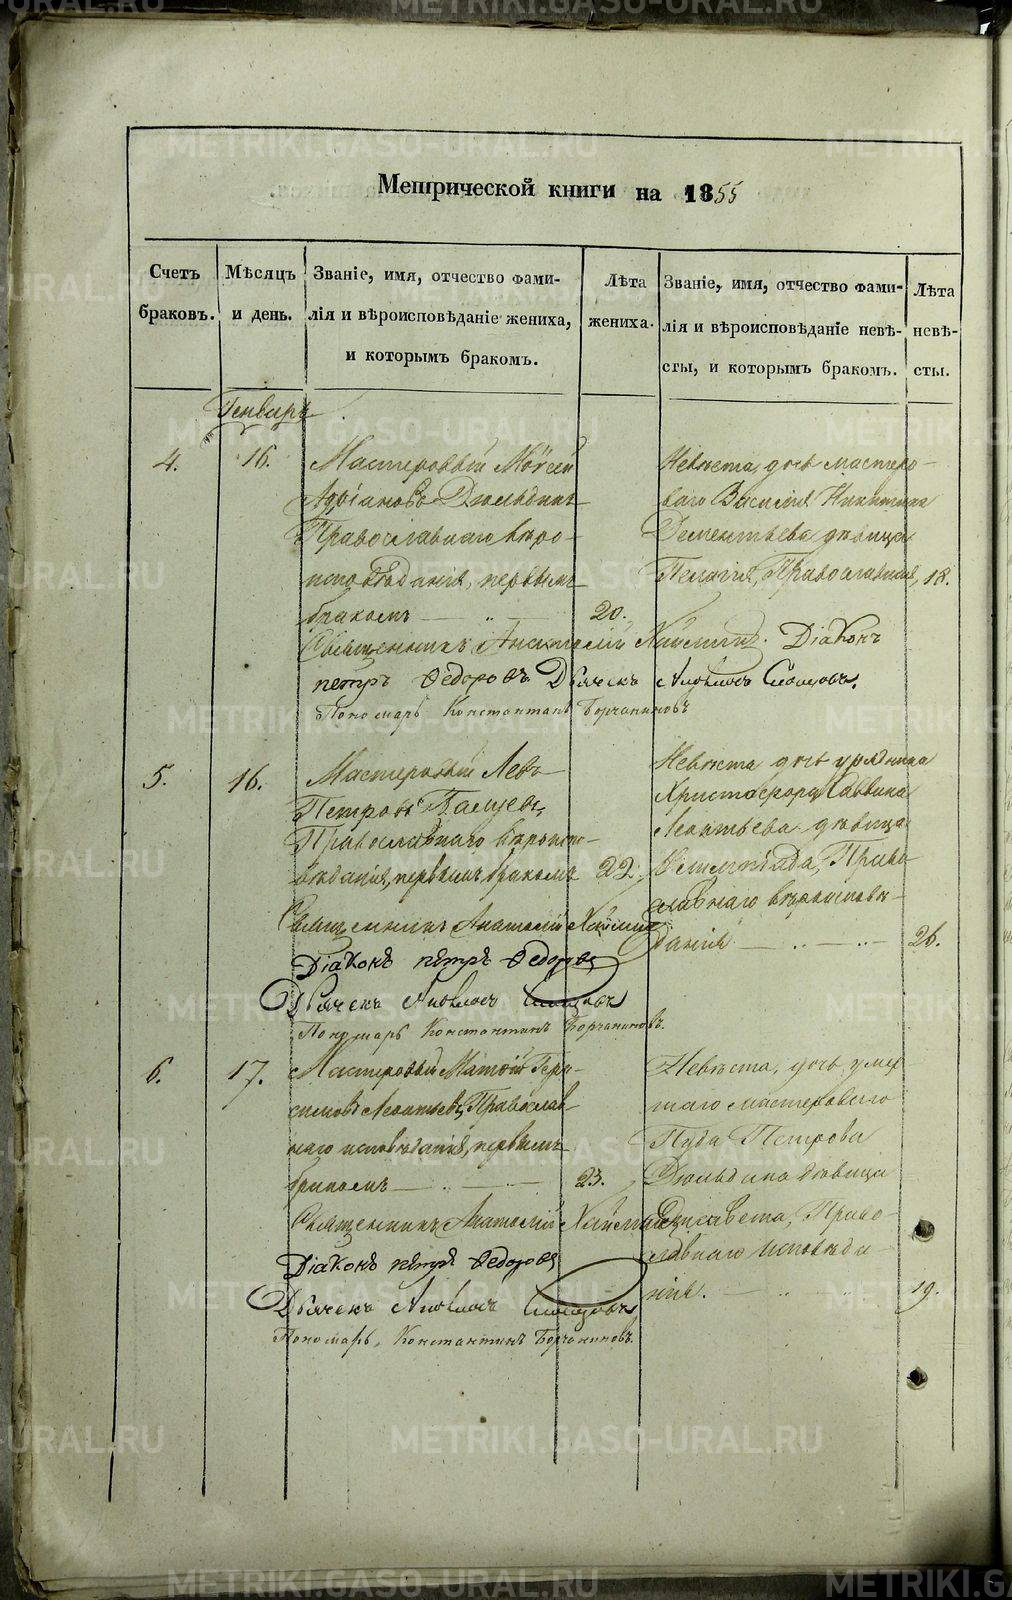 Метрической книги на 1855
Счетъ браковъ.
Мѣсяцъ и день.
Званіе, имя, отчество фами-
лія и вѣроисповѣданіе жениха,
и которымъ бракомъ.
Лѣта жениха.
Званіе, имя, отчество фами-
лія и вѣроисповѣданіе невѣ-
сты, и которымъ бракомъ.
Лѣта невѣ-
сты.
Генварь
4.
16.
Мастеровый Моѵсей
Адріановъ Дюльдинъ
Православнаго вѣро-
исповѣданія, первымъ
бракомъ — „ — 20.
Невѣста, дочь мастеро-
ваго Василія Никитина
Дементьева дѣвица
Пелагія, Православная, 18.
Священникъ Анатолій Діаконъ
петръ Ѳедоровъ Дьячекъ
Пономарь Константинъ Борчаниновъ
5.
16.
Мастеровый Левъ
Петровъ
Православнаго вѣроиспо-
вѣданія, первымъ бракомъ 22.
Невѣста дочь урядника
Христофора Саввина
Леонтьева дѣвица
Олимпіада, Право-
славнаго вѣроисповѣ-
данія — „ — „ — 26.
Священникъ Анатолій
Діаконъ петръ Ѳедоровъ
Дьячекъ
Пономарь Константинъ Борчаниновъ.
6.
17.
Мастеровый Матѳій Гера-
симовъ Леонтьевъ, Православ-
наго исповѣданія, первымъ
бракомъ — „ — 23.
Невѣста, дочь умер-
шаго мастероваго
Пуда Петрова
Дюльдина дѣвица
Елисавета, Право-
славнаго исповѣда-
нія. — „ — „ 19.
Священникъ Анатолій
Діаконъ петръ Ѳедоровъ
Дьячекъ
Пономарь, Константинъ Борчаниновъ.
METRIKI.GASO-URAL.RU